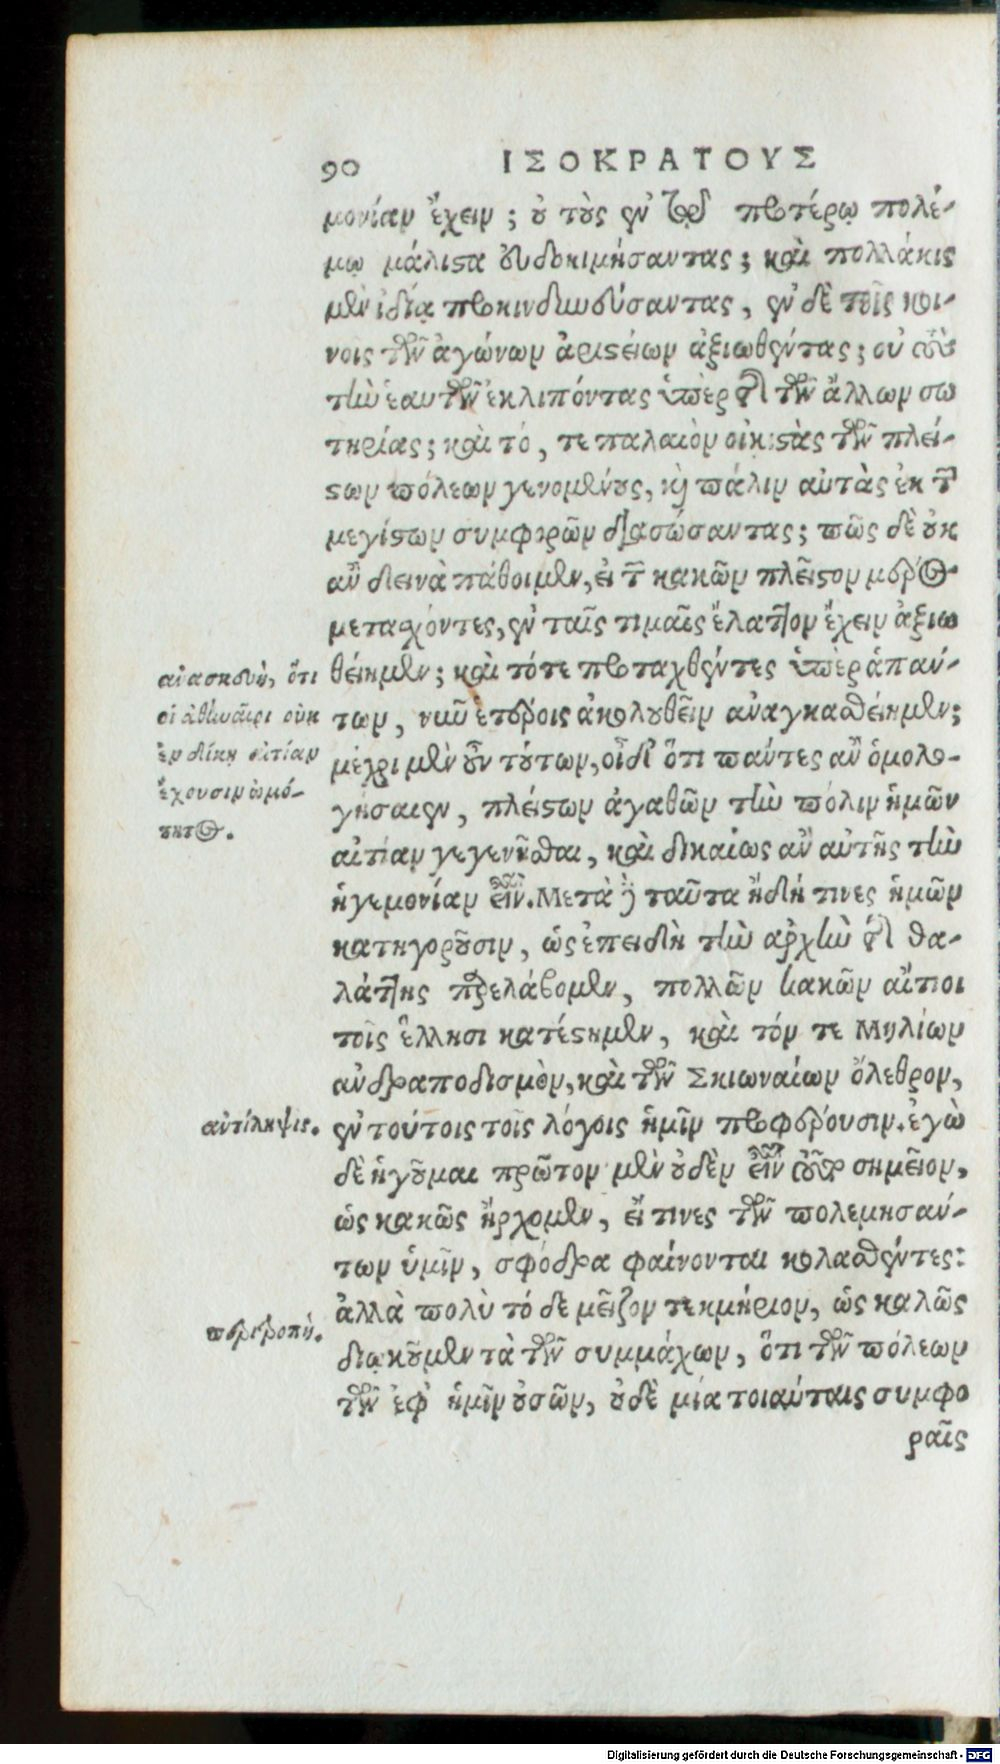 90 ΙΣΟΚΡΑΤΟΥΣ
μονίαν ἔχειν; οὐ τοὺς ἐν τῷ προτέρῳ πολέ-
μῳ μάλιστα εὐδοκιμήσαντας; καὶ πολλάκις
μὲν ἰδίᾳ προκινδυνεύσαντας, ἐν δὲ τοῖς κοι-
νοῖς τῶν ἀγώνων ἀριστείων ἀξιωθέντας; οὐ τοὺς
τὴν ἑαυτῶν ἐκλιπόντας ὑπὲρ τῆς τῶν ἄλλων σω
τηρίας; καὶ τό, τε παλαιὸν οἰκιστὰς τῶν πλεί-
στων πόλεων γενομένους, καὶ πάλιν αὐτὰς ἐκ τῶν
μεγίστων συμφορῶν διασώσαντας; πῶς δὲ οὐκ
ἂν δεινὰ πάθοιμεν, εἰ τῶν κακῶν πλεῖστον μέρος
μετασχόντες, ἐν ταῖς τιμαῖς ἔλαττον ἔχειν ἀξιω
θείημεν; καὶ τότε προταχθέντες ὑπὲρ ἁπάν-
των, νυνὶ ἑτέροις ἀκολουθεῖν ἀναγκασθείημεν;
μέχρι μὲν οὖν τούτων, οἶδ' ὅτι πάντες ἂν ὁμολο-
γήσαιεν, πλείστων ἀγαθῶν τὴν πόλιν ἡμῶν
αἰτίαν γεγενῆσθαι, καὶ δικαίως ἂν αὐτῆς τὴν
ἡγεμονίαν εἶναι. Μετὰ δὲ ταῦτα ἤδη τινες ἡμῶν
κατηγοροῦσιν, ὡς ἐπειδὴ τὴν ἀρχὴν τῆς θα-
λάττης παρελάβομεν, πολλῶν κακῶν αἴτιοι
τοῖς ἕλλησι κατέστημεν, καὶ τόν τε Μηλίων
ἀνδραποδισμὸν, καὶ τῶν Σκιωναίων ὄλεθρον,
ἐν τούτοις τοῖς λόγοις ἡμῖν προφέρουσιν. ἐγὼ
δὲ ἡγοῦμαι πρῶτον μὲν οὐδὲν εἶναι τοῦτο σημεῖον,
ὡς κακῶς ἤρχομεν, εἴ τινες τῶν πολεμησάν-
των ὑμῖν, σφόδρα φαίνονται κολασθέντες:
ἀλλὰ πολὺ τό δε μεῖζον τεκμήριον, ὡς καλῶς
διῳκοῦμεν τὰ τῶν συμμάχων, ὅτι τῶν πόλεων
τῶν ἐφ' ἡμῖν οὐσῶν, οὐδὲ μία τοιαύταις συμφο
ραῖς
ἀνασκευή, ὅτι
οἱ ἀθηναῖοι οὐκ
ἐν δίκῃ αἰτίαν
ἔχουσιν ὠμό-
τητος.
ἀντίληψις.
περιτροπή.
Digitalisierung gefördert durch die Deutsche Forschungsgemeinschaft - DFG